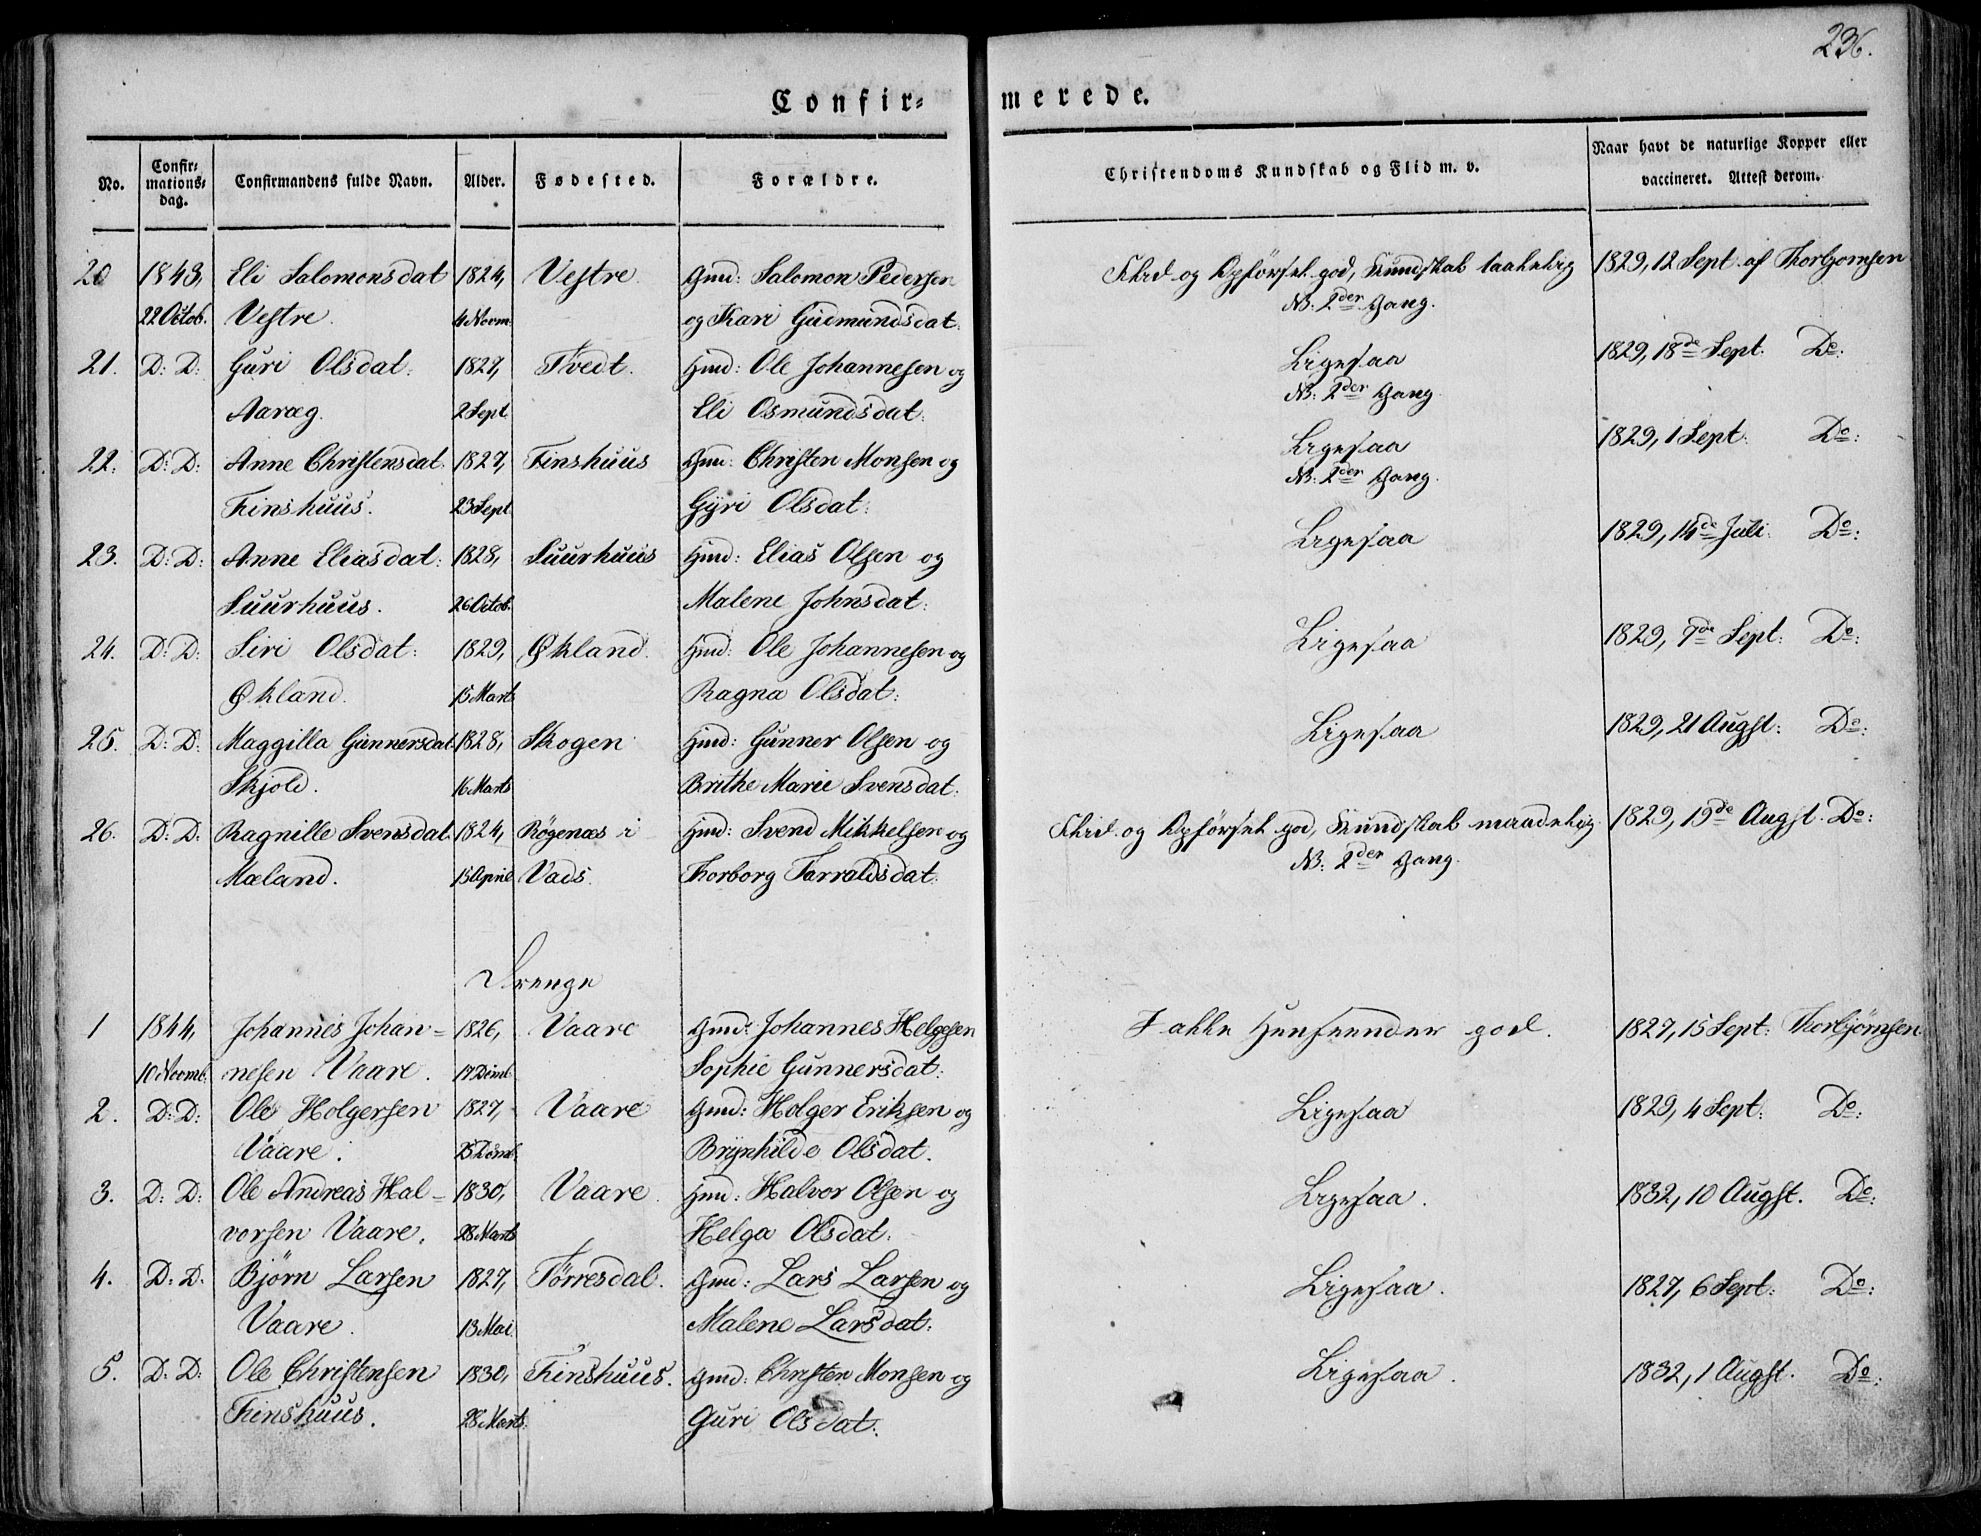 236.
Confir= merede.
No. Confir= mations= dag. Confirmandens fulde Navn. Alder. Fødested. Forældre. Christendoms Kundskab og Flid m. v. Naar havt de naturlige Kopper eller vaccineret. Attest derom.
20 1843, Eli Salomonsdat 1824, Vestre. Gmd: Salomon Pedersen Flid og Opførsel god, Kundskab taalelig 1829, 12 Sept. af Thorbjornsen
22 Octob. Vestre. 4 Novm: og Kari Gudmundsdat: NB: 2der Gang.
21. D: D: Guri Olsdat: 1827, Tvedt. Hmd: Ole Johannesen og Ligesaa 1829, 18de Sept: Do:
Aaraeg. 2 Sept. Eli Osmundsdat: NB: 2der Gang.
22. D: D: Anne Christensdat: 1827, Finshuus Gmd: Christen Monsen og Ligesaa 1829, 1 Sept: Do:
Finshuus. 23 Sept. Gyri Olsdat: NB: 2der Gang.
23. D: D: Anne Eliasdat: 1828, Suurhuus Hmd: Elias Olsen og Ligesaa 1829, 14de Juli: Do:
Suurhuus. 26 Octob. Malene Johnsdat:
24. D: D: Siri Olsdat: 1829, Økland. Hmd: Ole Johannesen og Ligesaa 1829, 7de Sept: Do:
Økland. 15 Marts Ragna Olsdat:
25. D: D: Maggilla Gunnersdat: 1828, Skogen Hmd: Gunner Olsen og Ligesaa 1829, 21 Augst: Do:
Skjold. 16 Marts Brithe Marie Svensdat:
26. D: D: Ragnille Svensdat. 1824, Røgenæs i Hmd: Svend Mikkelsen og Flid og Opførsel god, Kundskab maadelig. 1829, 19de Augst. Do:
Mæland. 15 April Vads. Thorborg Tarraldsdat: NB: 2der Gang.
Drenge
1 1844, Johannes Johan= 1826, Vaare Gmd: Johannes Helgesen I alle Henseender god. 1827, 15 Sept: Thorbjörnsen
10 Novmb: nesen Vaare. 17 Dcmb. Sophie Gunnersdat:
2. D: D: Ole Holgersen 1827, Vaare Gmd: Holger Eriksen og Ligesaa 1829, 4 Sept: Do:
Vaare. 25 Dcmb. Brynhilde Olsdat.
3. D: D: Ole Andreas Hal= 1830, Vaare. Hmd: Halvor Olsen og Ligesaa. 1832, 10 Augst. Do:
vorsen Vaare. 28 Marts Helga Olsdat:
4. D: D. Bjørn Larsen 1827, Tørresdal. Gmd: Lars Larsen og Ligesaa. 1827, 6 Sept: Do:
Vaare. 13 Mai Malene Larsdat:
5. D: D: Ole Christensen 1830, Finshuus. Gmd: Christen Monsen og Ligesaa. 1832, 1 Augst. Do:
Finshuus. 28 Marts. Guri Olsdat: